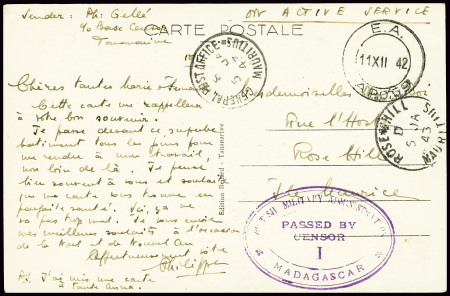 Sender: Ph: Gellé
c/o Base Censor
Tananarive
ON ACTIVE SERVICE
CARTE POSTALE
GENERAL POST OFFICE MAURITIUS
E.A.
11 XII 42
A.P.O. 59
ROSE-HILL MAURITIUS
D
5 JA
43
Chères tantes Marie
Cette carte vous rappellera
à votre bon souvenir.
Je passe devant ce superbe
bâtiment tous les jours pour
me rendre à mon travail,
non loin de là. Je pense
bien souvent à vous et souhaite
que ma carte vous trouve en
parfaite santé. Ici, ça ne
va pas trop mal. Je vous envoie
mes meilleurs souhaits à l'occasion
de la Noël et du Nouvel An
Affectueusement vôtre
Philippe
P.S. J'ai mis une carte
à tante Anna.
Tananarive
Mesdemoiselles
Rue l'Hos
Rose Hill
Ile Maurice
BRITISH MILITARY ADMINISTRATION
PASSED BY
CENSOR
I
MADAGASCAR